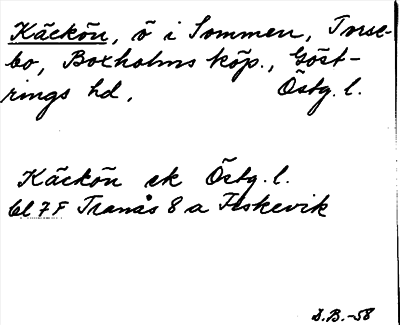 Käckön, ö i Sommen, Torse-
bo, Boxholms köp., Göst-
rings hd, Östg. l.
Käckön ek Östg. l.
bl 7F Tranås 8 a Fiskevik
S.B.-58